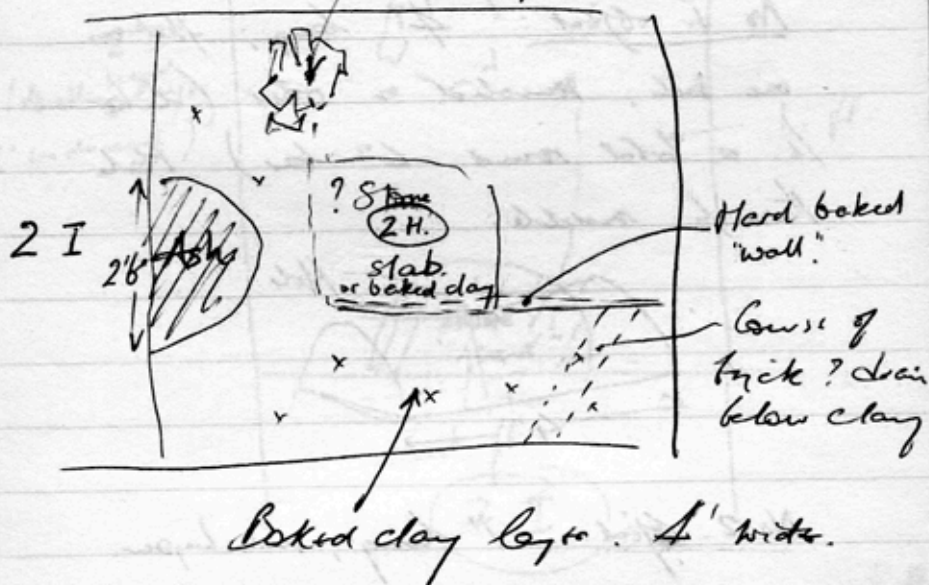 ? Stone
2 H.
slab.
or baked clay
2 I
2'6"
Ash
Hard baked
"wall."
Course of
brick ? drain
below clay
Baked clay layer. 4' wide.